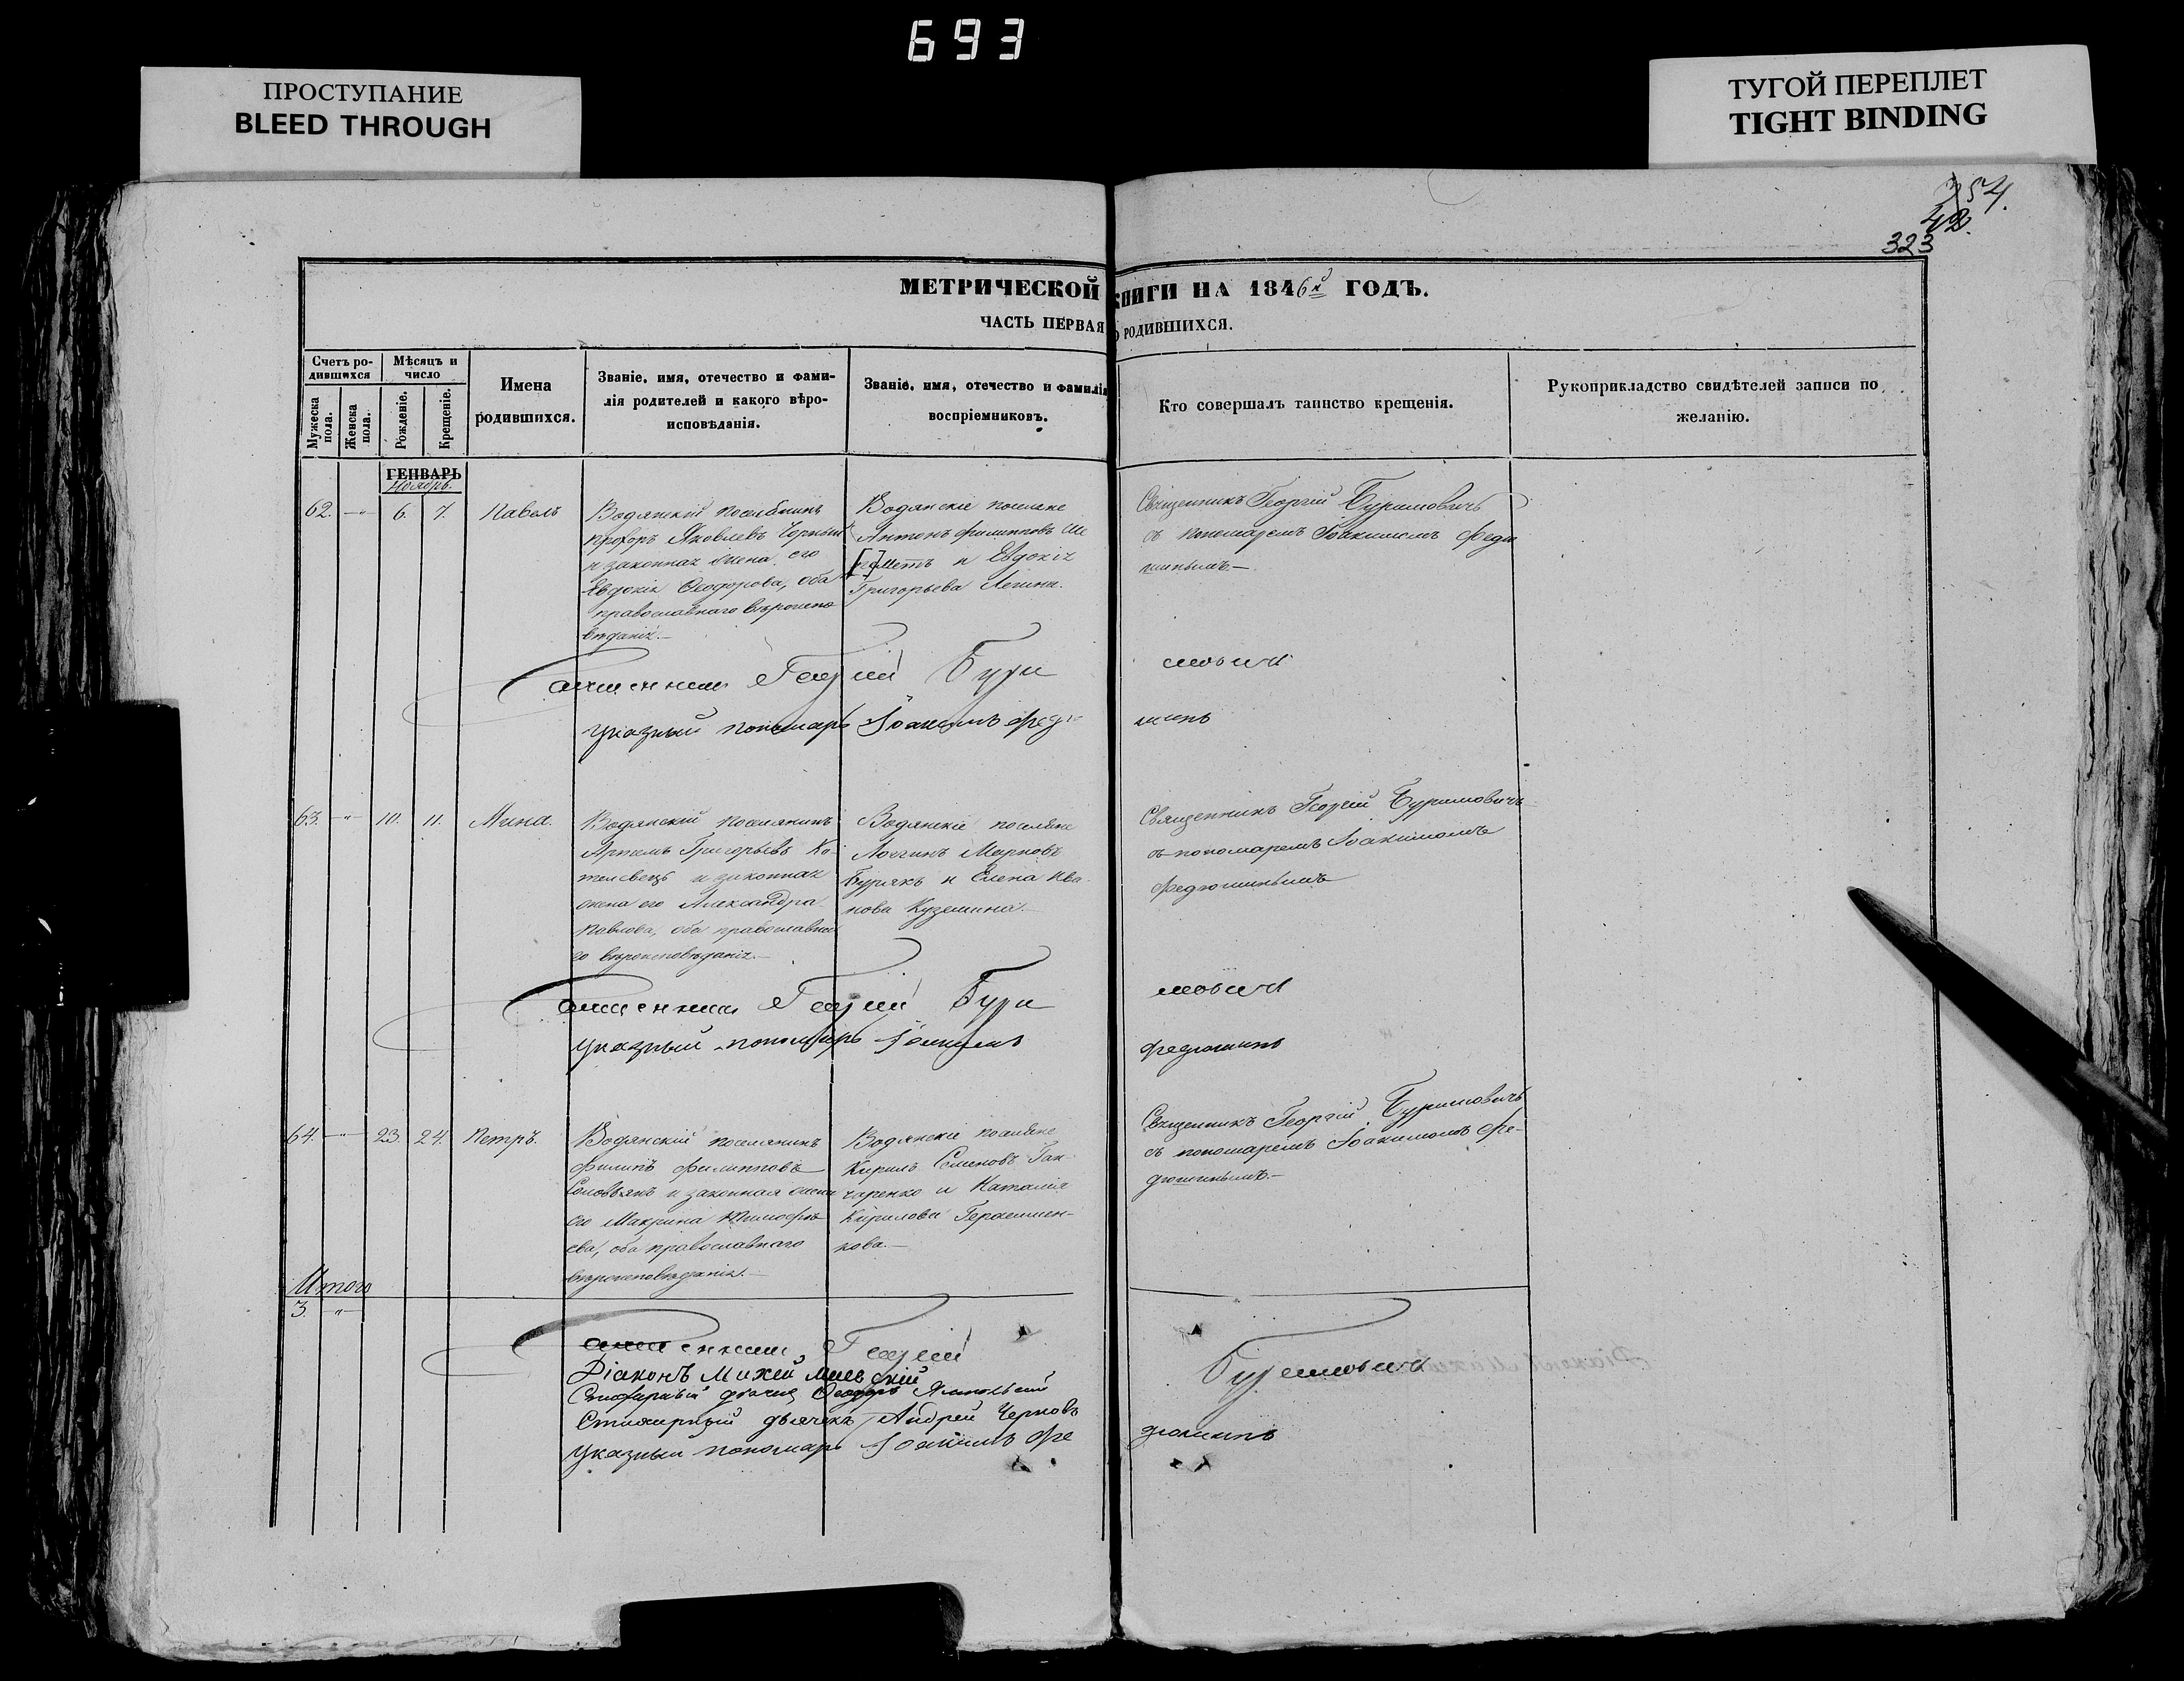 693
ПРОСТУПАНИЕ
BLEED THROUGH
ТУГОЙ ПЕРЕПЛЕТ
TIGHT BINDING
354.
42.
323
МЕТРИЧЕСКОЙ КНИГИ НА 1846й ГОДЪ.
ЧАСТЬ ПЕРВАЯ О РОДИВШИХСЯ.
Счетъ ро-
дившихся
Мужеска пола.
Женска пола.
Мѣсяцъ и
число
Рожденіе.
Крещеніе.
Имена
родившихся.
Званіе, имя, отечество и фами-
лія родителей и какого вѣро-
исповѣданія.
Званіе, имя, отечество и фамилія
воспріемниковъ.
Кто совершалъ таинство крещенія.
Рукоприкладство свидѣтелей записи по
желанію.
ГЕНВАРЬ
Ноябрь.
62. -"- 6. 7. Павелъ
Водянскій поселянинъ
Прохоръ Яковлевъ Чорный
и законная жена его
Евдокія Ѳеодорова, оба
православнаго вѣроиспо
вѣданія.-
Водянскіе поселяне
Антонъ Филипповъ Ше
[] и Евдокія
Григорьева
Священникъ Георгій Буримовичь
съ пономаремъ Іоакимомъ Федю
шинымъ.-
Священникъ Георгій Буримовичъ
Указный пономарь Іоакимъ Федюшинъ
63. -"- 10. 11. Мина.
Водянскій поселянинъ
Артемъ Григорьевъ Ко-
телевецъ и законная
жена его Александра
Павлова, оба православна
го вѣроисповѣданія.-
Водянскіе поселяне
Логгинъ Марковъ
Бурякъ и Елена Ива-
нова Куземина.-
Священникъ Георгій Буримовичь
съ пономаремъ Іоакимомъ
Федюшинымъ
Священникъ Георгій Буримовичъ
Указный пономарь Іоакимъ Федюшинъ
64. -"- 23. 24. Петръ.
Водянскій поселянинъ
Филипъ Филипповъ
Соловьянъ и законная жена
его Макрина Тимофѣ
ева, оба православнаго
вѣроисповѣданія.-
Водянскіе поселяне
Кирилъ Семеновъ Ган-
чаренко и Наталія
Кирилова Герасимен-
кова.-
Священникъ Георгій Буримовичь
съ пономаремъ Іоакимомъ Фе-
дюшинымъ.-
Итого
3. "
Священникъ Георгій Буримовичъ
Діаконъ Михей
Стихарный дьячекъ Ѳеодоръ
Стихарный дьячекъ Андрей Черновъ
Указный пономарь Іоакимъ Федюшинъ